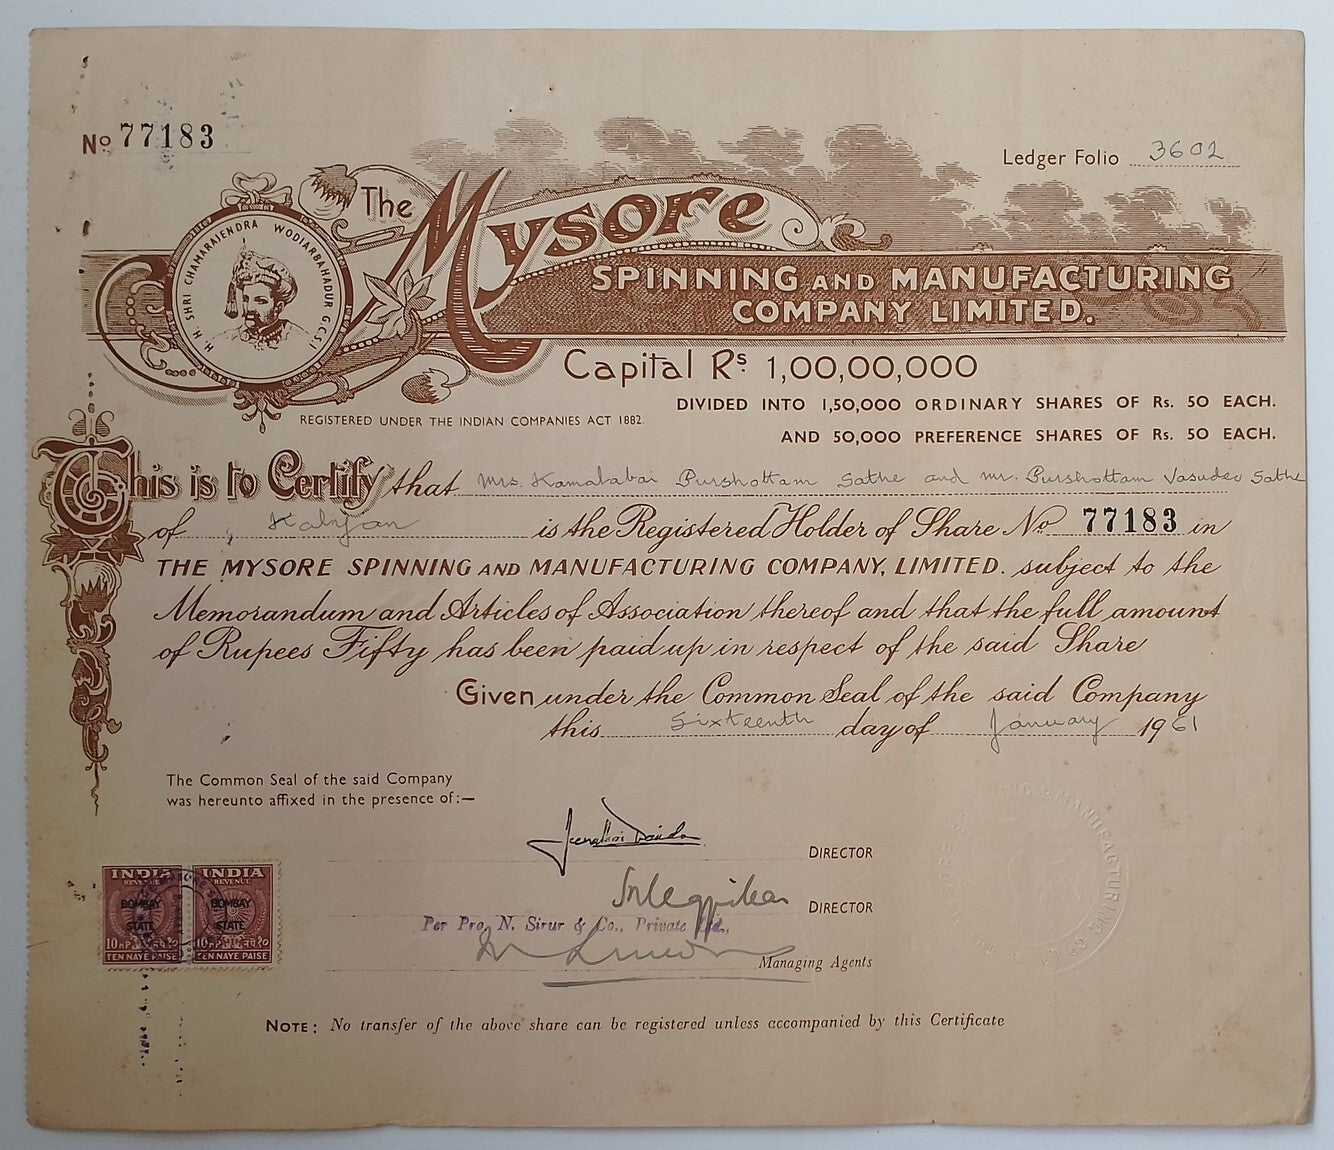 No 77183
Ledger Folio 3602
The Mysore
SPINNING AND MANUFACTURING
COMPANY LIMITED.
H. H. SHRI CHAMARAJENDRA WODIARBAHADUR G.C.S.I
Capital Rs. 1,00,00,000
DIVIDED INTO 1,50,000 ORDINARY SHARES OF Rs. 50 EACH.
REGISTERED UNDER THE INDIAN COMPANIES ACT 1882.
AND 50,000 PREFERENCE SHARES OF Rs. 50 EACH.
This is to Certify that Mrs. Kamalabai Purshottam Sathe and Mr. Purshottam Vasudev Sathe
of Kalyan is the Registered Holder of Share No 77183 in
THE MYSORE SPINNING AND MANUFACTURING COMPANY, LIMITED. subject to the
Memorandum and Articles of Association thereof and that the full amount
of Rupees Fifty has been paid up in respect of the said Share
Given under the Common Seal of the said Company
this Sixteenth day of January 1961
The Common Seal of the said Company
was hereunto affixed in the presence of:—
DIRECTOR
DIRECTOR
Per Pro. N. Sirur & Co., Private Ltd.,
Managing Agents
INDIA INDIA
REVENUE REVENUE
BOMBAY BOMBAY
STATE STATE
10 nP १० 10 nP १०
TEN NAYE PAISE TEN NAYE PAISE
NOTE: No transfer of the above share can be registered unless accompanied by this Certificate